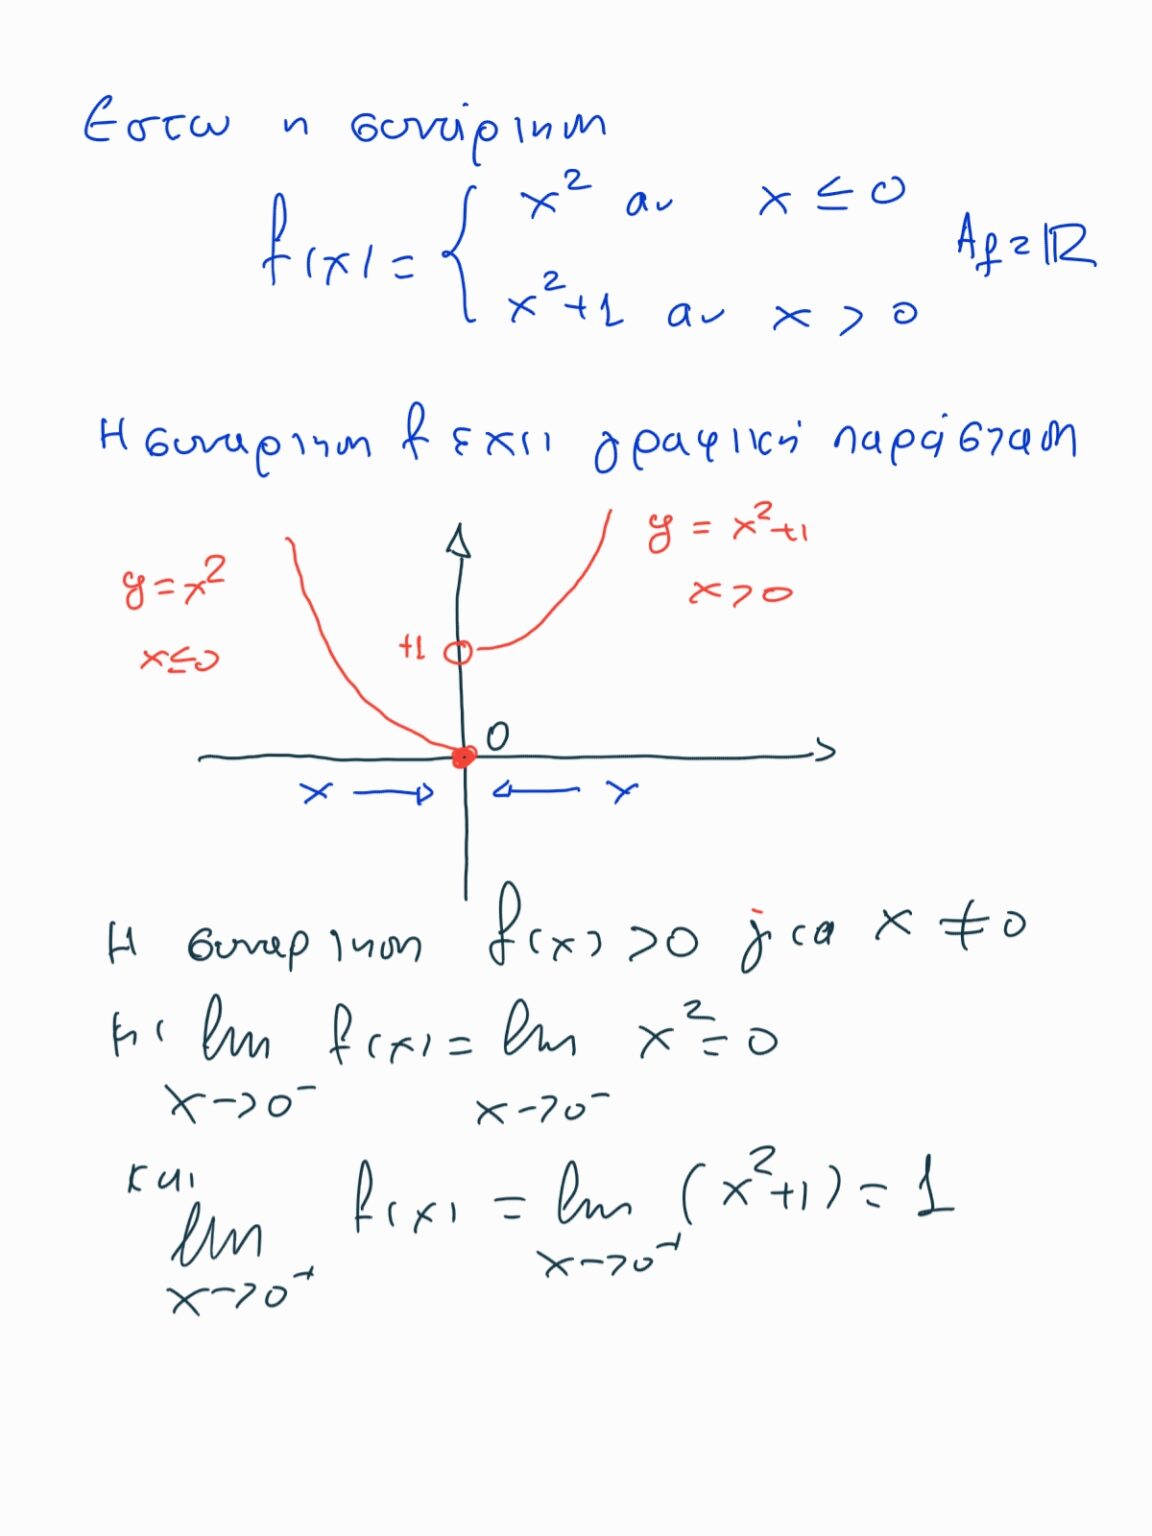 Εστω η συνάρτηση
f(x) = { x² αν x ≤ 0
x²+1 αν x > 0
A_f = ℝ
Η συναρτηση f εχει γραφική παράσταση
y = x²+1
x > 0
y = x²
x ≤ 0
+1
0
x → ← x
Η συναρτηση f(x) > 0 για x ≠ 0
με lim f(x) = lim x² = 0
x→0⁻ x→0⁻
και
lim f(x) = lim (x²+1) = 1
x→0⁺ x→0⁺